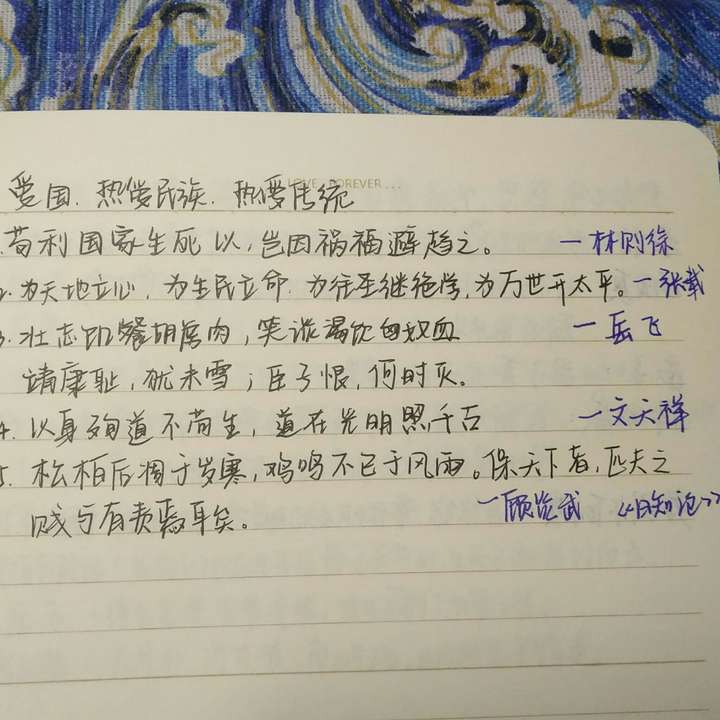 LOVE FOREVER...
爱国. 热爱民族. 热爱传统
1.苟利国家生死以,岂因祸福避趋之。 —林则徐
2.为天地立心, 为生民立命. 为往圣继绝学,为万世开太平。—张载
3.壮志饥餐胡虏肉,笑谈渴饮匈奴血 —岳飞
靖康耻,犹未雪;臣子恨,何时灭。
4. 以身殉道不苟生,道在光明照千古 —文天祥
5. 松柏后凋于岁寒,鸡鸣不已于风雨。保天下者,匹夫之
贱与有责焉耳矣。 —顾炎武 《日知记》